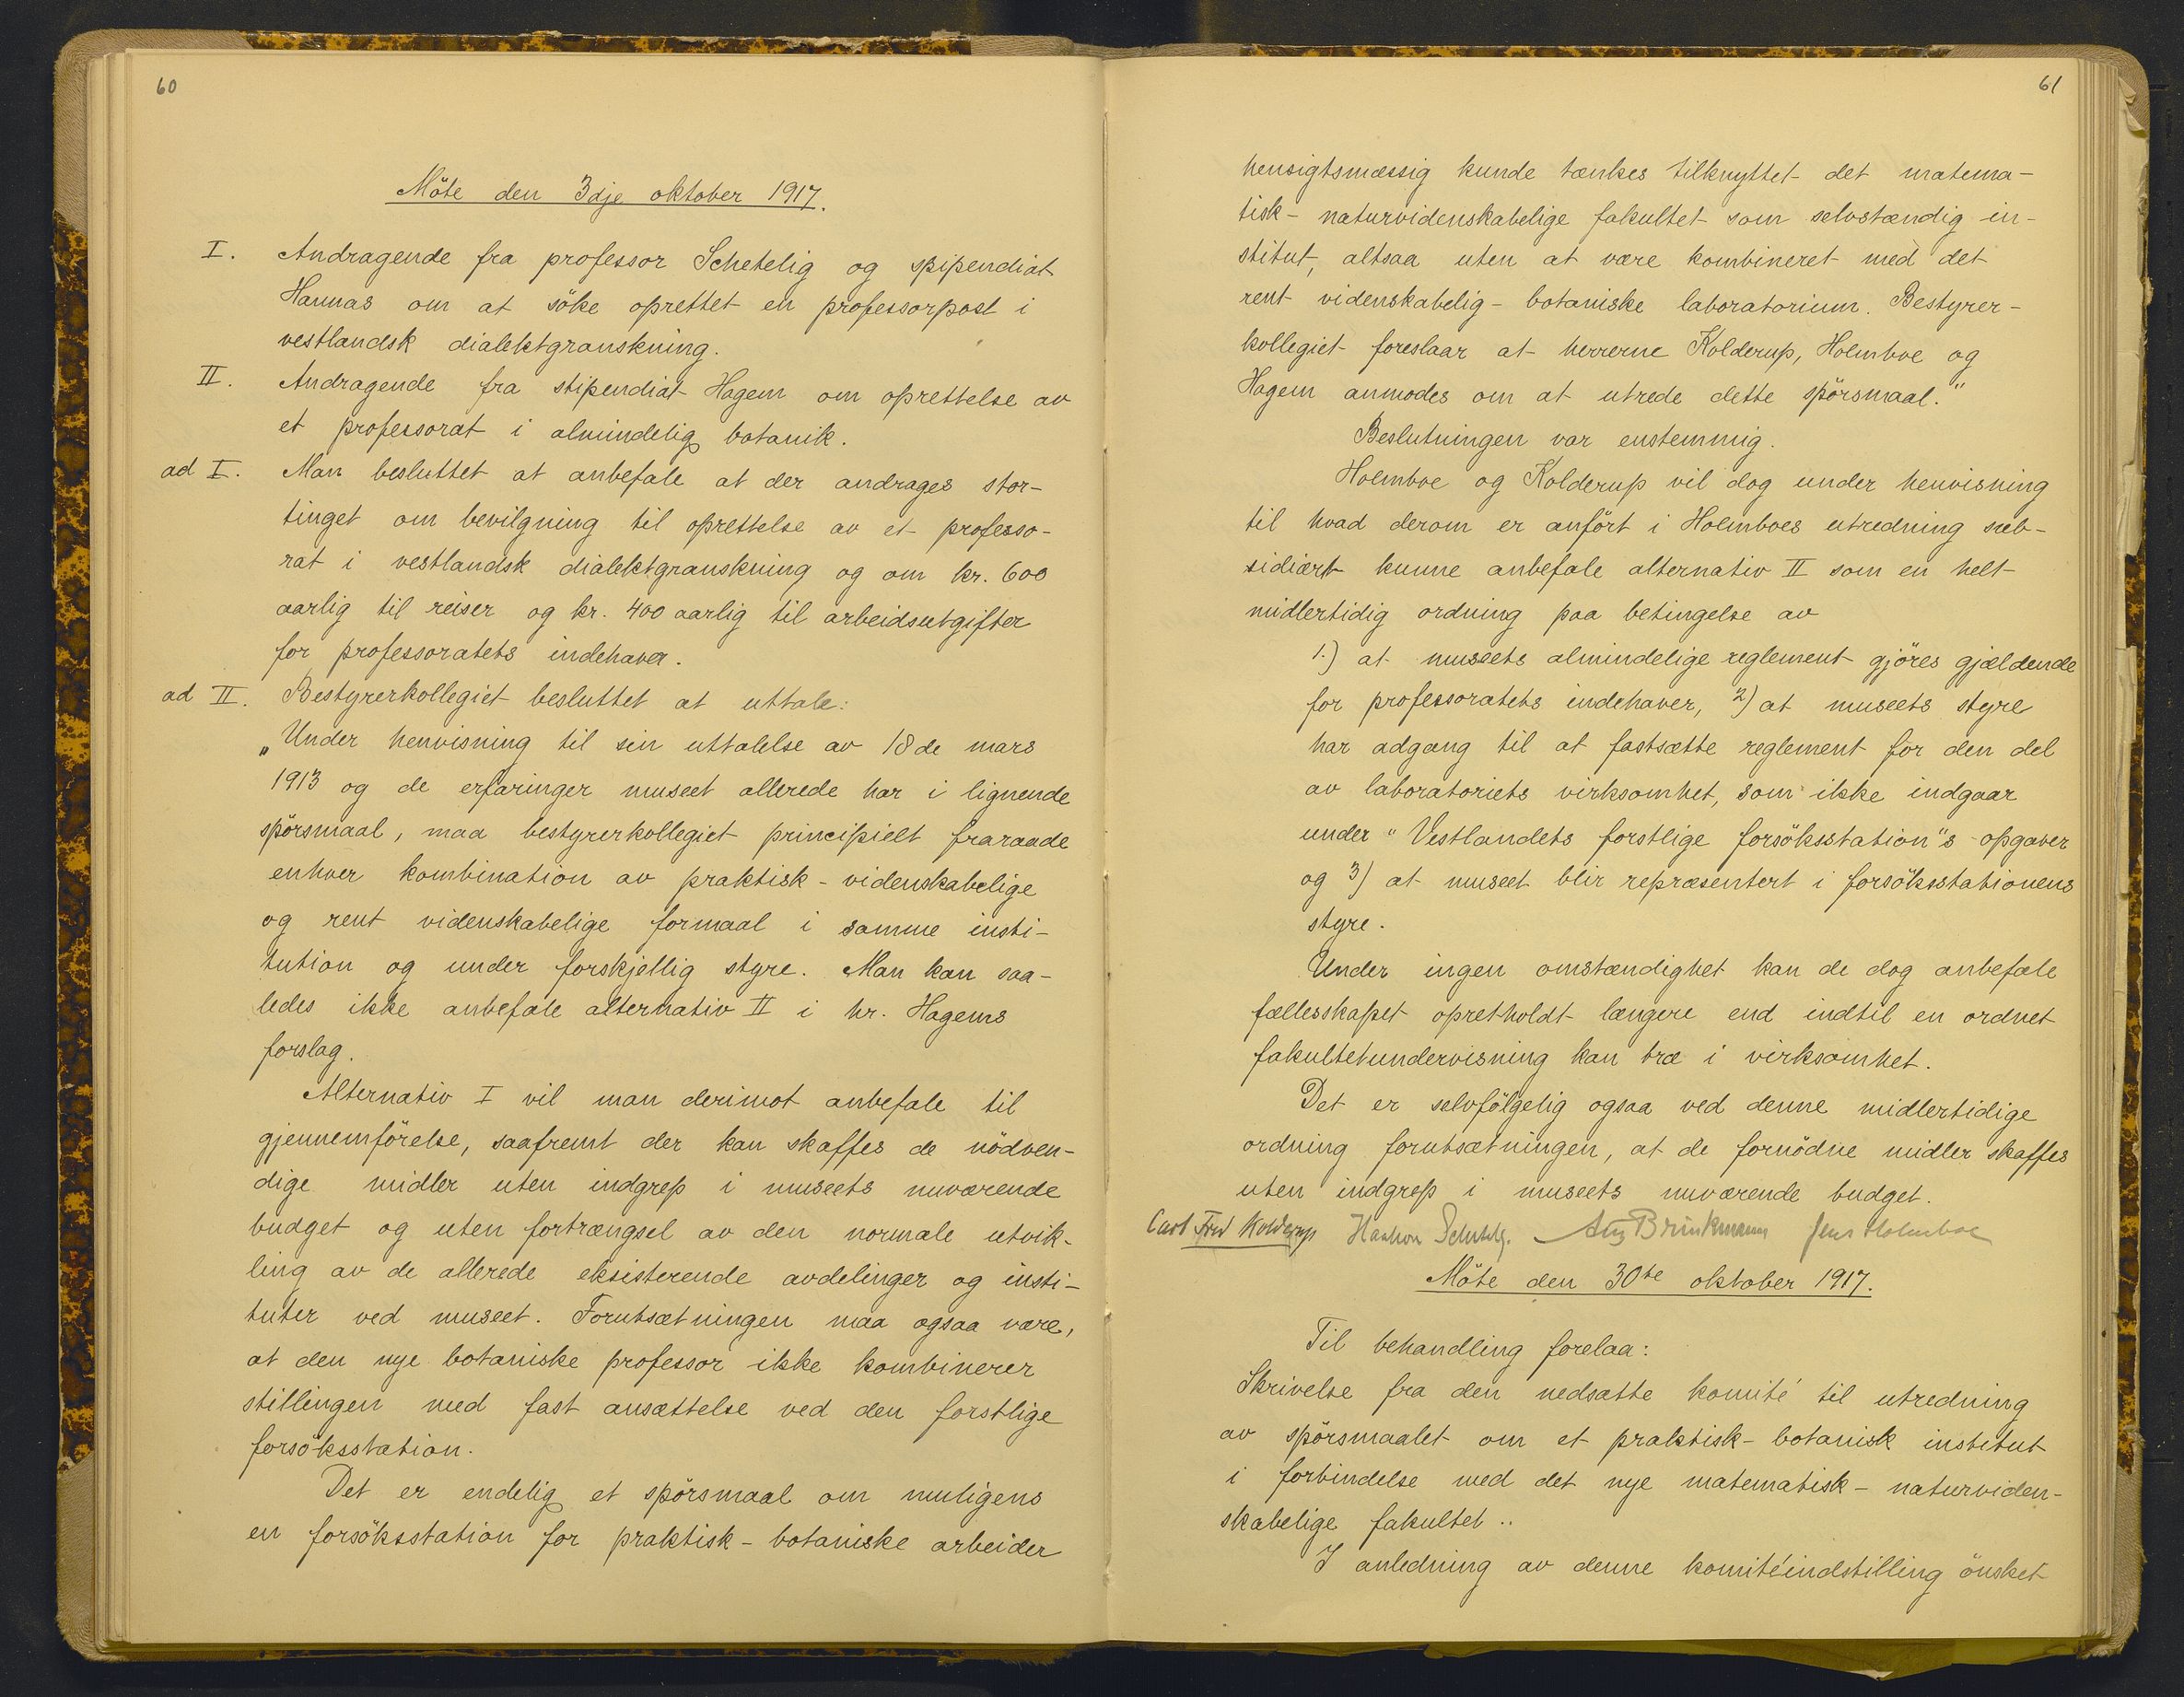 60
Möte den 3dje oktober 1917.
I. Andragende fra professor Schetelig og spipendiat
Hannas om at söke oprettet en professorpost i
vestlandsk dialektgranskning.
II. Andragende fra stipendiat Hagem om oprettelse av
et professorat i almindelig botanik.
ad I. Man besluttet at anbefale at der andrages stor-
tinget om bevilgning til oprettelse av et professo-
rat i vestlandsk dialektgranskning og om kr. 600
aarlig til reiser og kr. 400 aarlig til arbeidsutgifter
for professoratets indehaver.
ad II. Bestyrerkollegiet besluttet at uttale:
„Under henvisning til sin uttalelse av 18de mars
1913 og de erfaringer museet allerede har i lignende
spörsmaal, maa bestyrerkollegiet principielt fraraade
enhver kombination av praktisk-videnskabelige
og rent videnskabelige formaal i samme insti-
tution og under forskjellig styre. Man kan saa-
ledes ikke anbefale alternativ II i hr. Hagems
forslag.
Alternativ I vil man derimot anbefale til
gjennemförelse, saafremt der kan skaffes de nödven-
dige midler uten indgrep i museets nuværende
budget og uten fortrængsel av den normale utvik-
ling av de allerede eksisterende avdelinger og insti-
tuter ved museet. Forutsætningen maa ogsaa være,
at den nye botaniske professor ikke kombinerer
stillingen med fast ansættelse ved den forstlige
forsöksstation.
Det er endelig et spörsmaal om muligens
en forsöksstation for praktisk-botaniske arbeider
61
hensigtsmæssig kunde tænkes tilknyttet det matema-
tisk-naturvidenskabelige fakultet som selvstændig in-
stitut, altsaa uten at være kombineret med det
rent videnskabelig-botaniske laboratorium. Bestyrer-
kollegiet foreslaar at herrerne Kolderup, Holmboe og
Hagem anmodes om at utrede dette spörsmaal."
Beslutningen var enstemmig.
Holmboe og Kolderup vil dog under henvisning
til hvad derom er anfört i Holmboes utredning sub-
sidiært kunne anbefale alternativ II som en helt
midlertidig ordning paa betingelse av
1.) at museets almindelige reglement gjöres gjældende
for professoratets indehaver, 2) at museets styre
har adgang til at fastsætte reglement for den del
av laboratoriets virksomhet, som ikke indgaar
under "Vestlandets forstlige forsöksstation"s opgaver
og 3) at museet blir repræsentert i forsöksstationens
styre.
Under ingen omstændighet kan de dog anbefale
fællesskapet opretholdt længere end indtil en ordnet
fakultetundervisning kan træ i virksomhet.
Det er selvfölgelig ogsaa ved denne midlertidige
ordning forutsætningen, at de fornödne midler skaffes
uten indgrep i museets nuværende budget.
Carl Fred Kolderup Haakon Schetelig. Aug Brinkmann Jens Holmboe
Möte den 30te oktober 1917.
Til behandling forelaa:
Skrivelse fra den nedsatte komité til utredning
av spörsmaalet om et praktisk-botanisk institut
i forbindelse med det nye matematisk-naturviden-
skabelige fakultet..
I anledning av denne komitéindstilling önsket